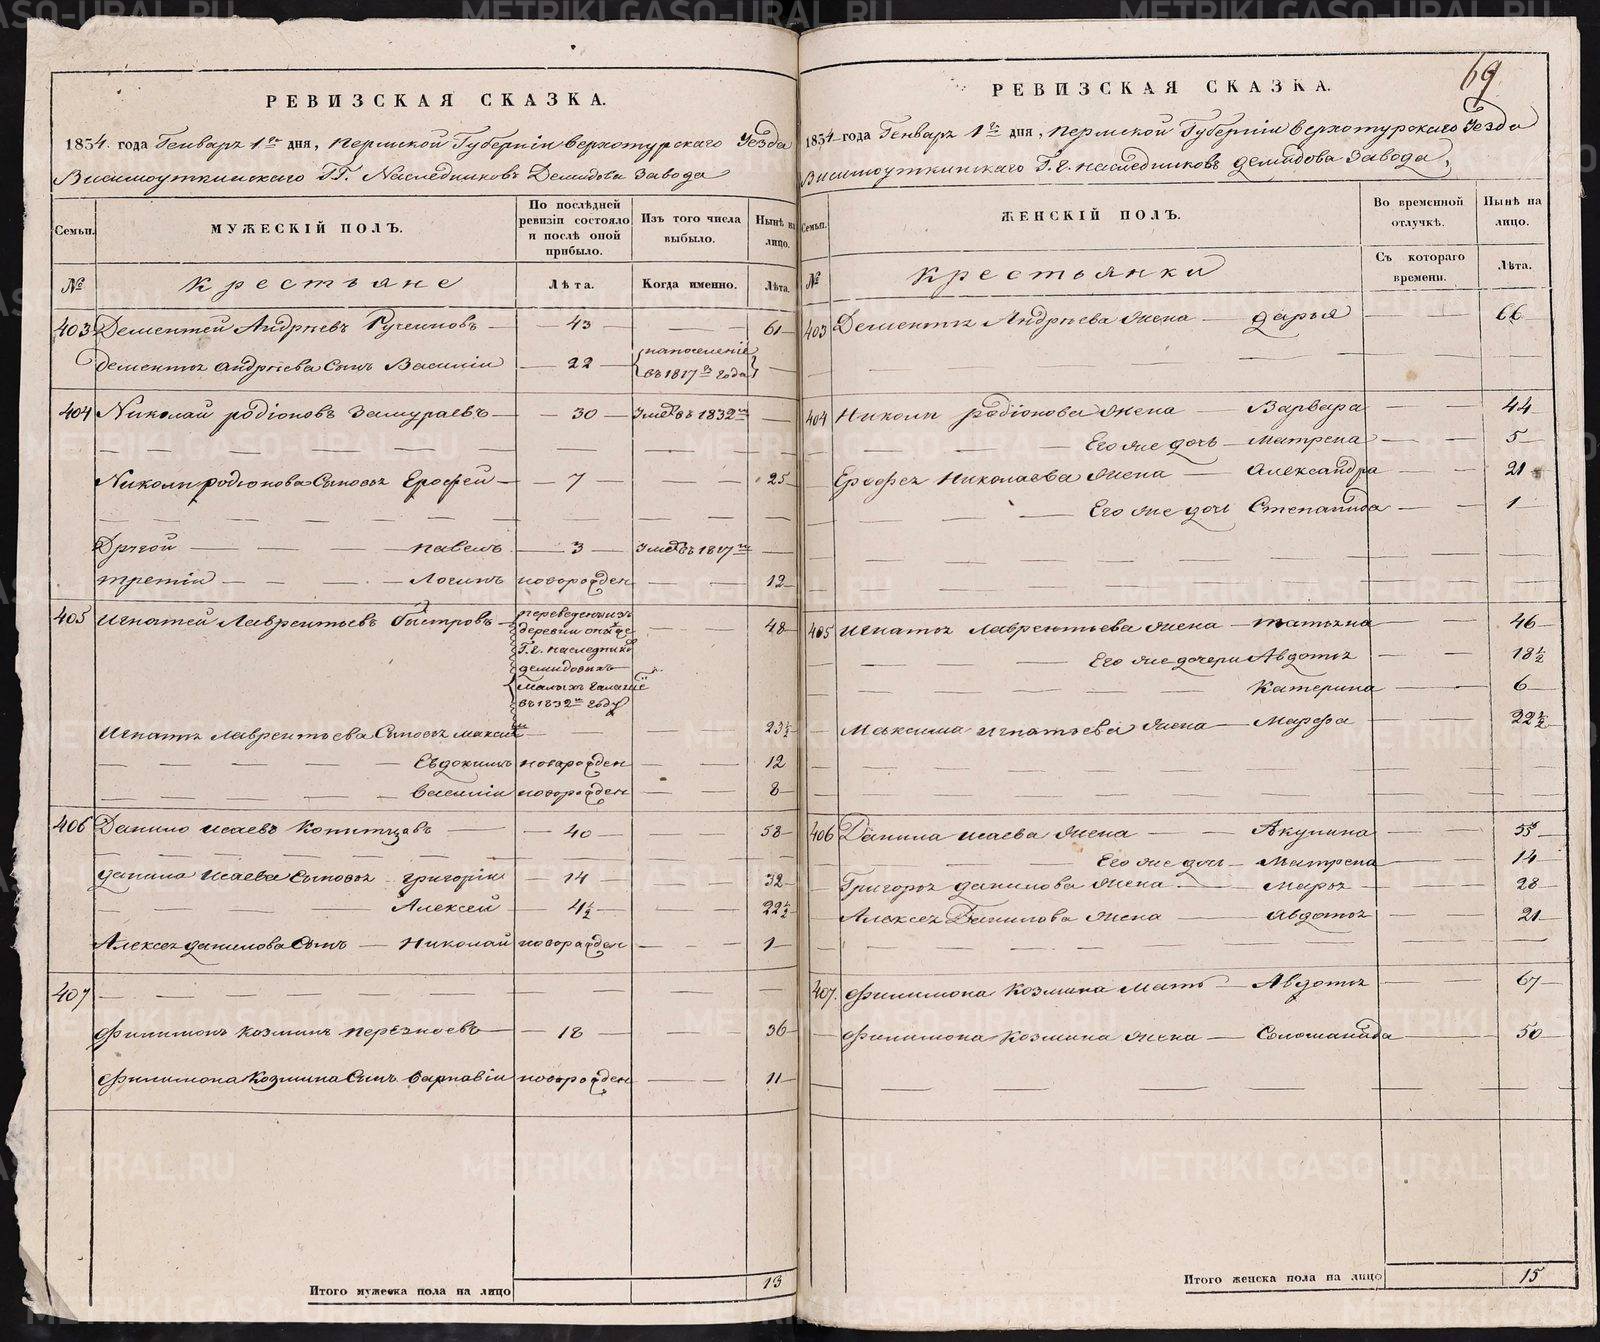 РЕВИЗСКАЯ СКАЗКА.
1834. года Генваря 1го дня, Пермской Губерніи Верхотурскаго Уезда
Висимоуткинскаго ГГ. Наследниковъ Демидова Завода
Семьи.
МУЖЕСКІЙ ПОЛЪ.
По послѣдней ревизіи состояло и послѣ оной прибыло.
Изъ того числа выбыло.
Нынѣ на лицо.
№
Крестьяне
Лѣта.
Когда именно.
Лѣта.
403 Дементей Андреевъ 43 61
Дементья Андреева Сынъ Василіи 22 на поселеніе въ 1817м года
404 Николай Родіоновъ Замураевъ 30 Умеръ въ 1832м
Николы Родіонова Сыновья Ерофей 7 25
Другой Павелъ 3 Умеръ въ 1817м
третіи Логинъ новорожден 12
405 Игнатей Лаврентьевъ Быстровъ переведены изъ деревни Г.г. наследник демидовыхъ въ 1832м году 48
Игнатья Лаврентьева Сыновья Максим 23½
Евдокимъ новорожден 12
Василіи новорожден 8
406 Данило Исаевъ Копытцовъ 40 58
Данила Исаева Сыновья Григоріи 14 32
Алексей 4½ 22½
Алексея Данилова Сынъ Николай новорожден 1
407
Филимонъ Козминъ 18 36
Филимона Козмина Сынъ Варнавіи новорожден 11
Итого мужеска пола на лицо 13
69
РЕВИЗСКАЯ СКАЗКА.
1834 года Генваря 1го дня, Пермской Губерніи Верхотурскаго Уезда
Висимоуткинскаго Г.г. Наследниковъ Демидова Завода,
Семьи.
ЖЕНСКІЙ ПОЛЪ.
Во временной отлучкѣ.
Нынѣ на лицо.
№
Крестьянки
Съ котораго времени.
Лѣта.
403 Дементья Андреева жена Дарья 66
404 Николы Родіонова жена Варвара 44
Его же дочь Матрена 5
Ерофея Николаева жена Александра 21
Его же дочь Степанида 1
405 Игнатья Лаврентьева жена Татьяна 46
Его же дочери Авдотья 18½
Катерина 6
Максима Игнатьева жена Марфа 22½
406 Данила Исаева жена Акулина 55
Его же дочь Матрена 14
Григорья Данилова жена Марья 28
Алексея Данилова жена Авдотья 21
407. Филимона Козмина Мать Авдотья 67
Филимона Козмина жена Соломанида 50
Итого женска пола на лицо 15
METRIKI.GASO-URAL.RU